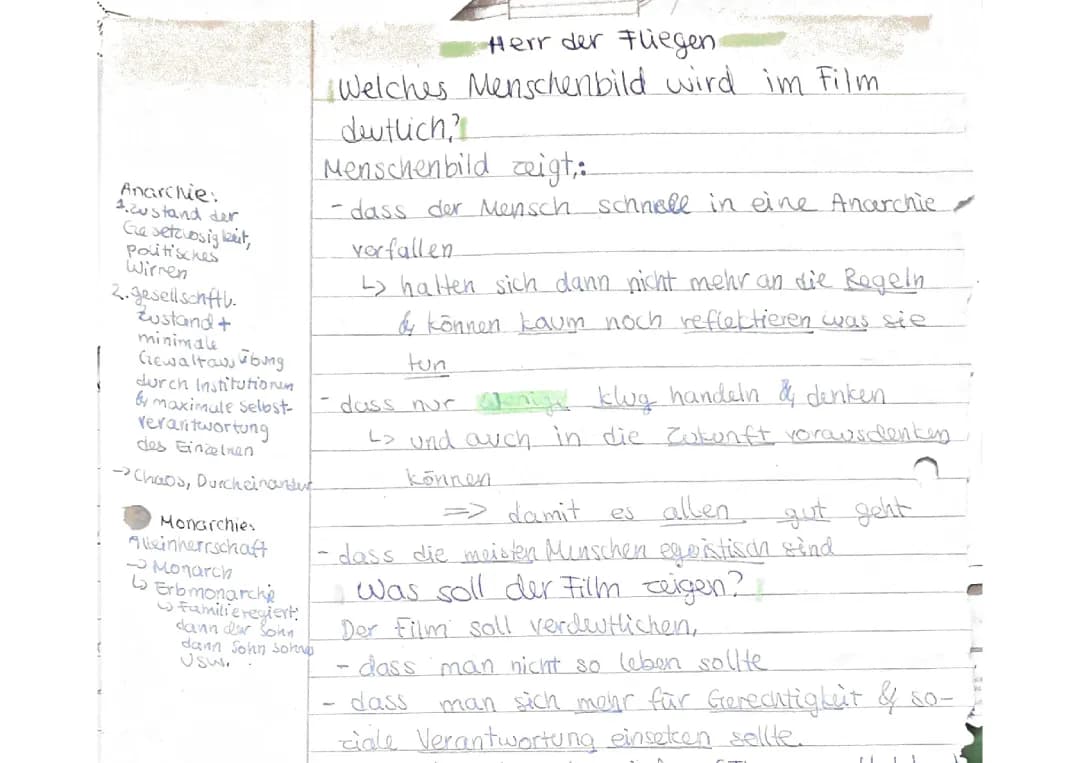 Herr der Fliegen
Welches Menschenbild wird im Film
deutlich?
Menschenbild zeigt,:
- dass der Mensch schnell in eine Anarchie
verfallen
↳ halten sich dann nicht mehr an die Regeln
& können kaum noch reflektieren was sie
tun
- dass nur wenige klug handeln & denken
↳ und auch in die Zukunft vorausdenken
können
=> damit es allen gut geht
- dass die meisten Menschen egoistisch sind
Was soll der Film zeigen?
Der Film soll verdeutlichen,
- dass man nicht so leben sollte
- dass man sich mehr für Gerechtigkeit & so-
ziale Verantwortung einsetzen sollte.
Anarchie:
1. Zustand der
Gesetzlosigkeit,
politisches
Wirren
2. gesellschftl.
Zustand +
minimale
Gewaltausübung
durch Institutionen
& maximale Selbst-
verantwortung
des Einzelnen
→ Chaos, Durcheinander
Monarchie:
Alleinherrschaft
→ Monarch
↳ Erbmonarchie
↳ Familie regiert:
dann der Sohn
dann Sohn sohn
usw.